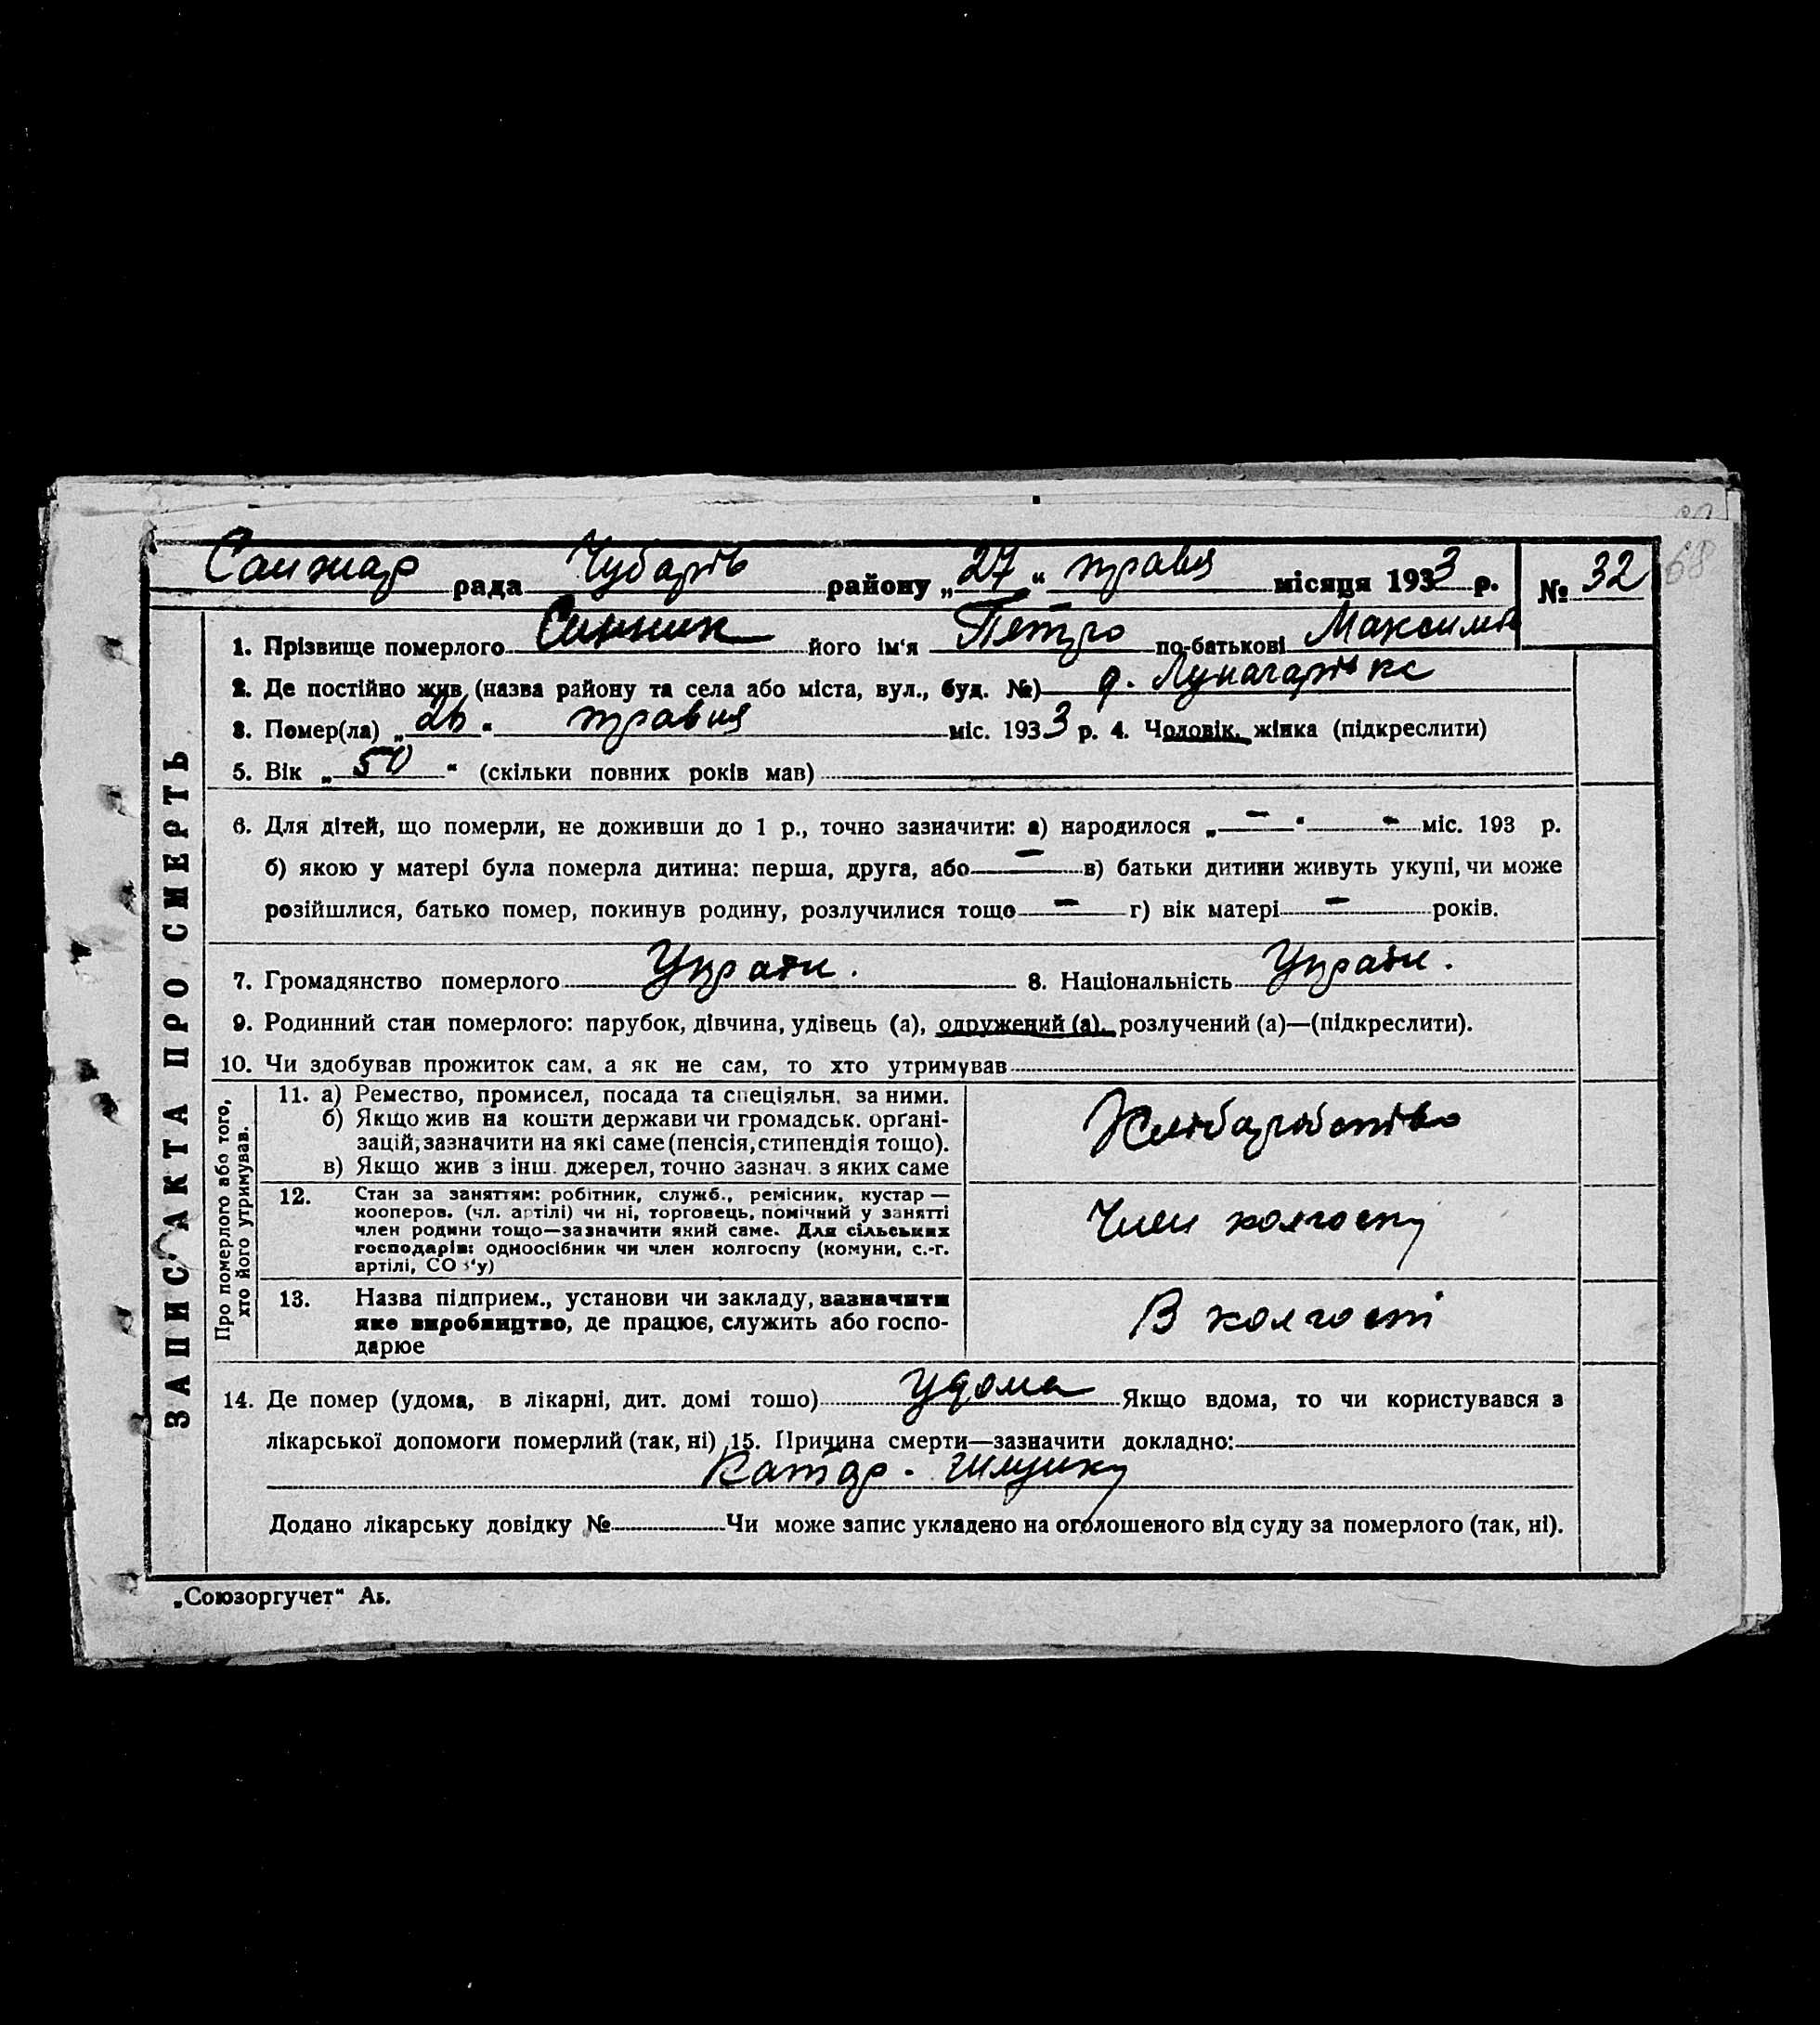 Санжар рада Чубарів району „27“ травня місяця 1933 р. № 32
68
1. Прізвище померлого його ім‘я Петро по-батькові Максимів
2. Де постійно жив (назва району та села або міста, вул., буд. №)
3. Помер(ла) „26“ травня міс. 1933 р. 4. Чоловік, жінка (підкреслити)
5. Вік „50“ (скільки повних років мав)
6. Для дітей, що померли, не доживши до 1 р., точно зазначити: а) народилося „—“ — міс. 193 р.
б) якою у матері була померла дитина: перша, друга, або — в) батьки дитини живуть укупі, чи може
розійшлися, батько помер, покинув родину, розлучилися тощо — г) вік матері — років.
7. Громадянство померлого Украін. 8. Національність Украін.
9. Родинний стан померлого: парубок, дівчина, удівець (а), одружений (а), розлучений (а)—(підкреслити).
10. Чи здобував прожиток сам, а як не сам, то хто утримував
ЗАПИС АКТА ПРО СМЕРТЬ
Про померлого або того,
хто його утримував.
11. а) Ремество, промисел, посада та спеціяльн. за ними.
б) Якщо жив на кошти держави чи громадськ. орґані-
зацій; зазначити на які саме (пенсія, стипендія тощо).
в) Якщо жив з інш. джерел, точно зазнач. з яких саме
Хлібаробство
12. Стан за заняттям: робітник, служб., ремісник, кустар —
кооперов. (чл. артілі) чи ні, торговець, помічний у занятті
член родини тощо—зазначити який саме. Для сільських
господарів: одноосібник чи член колгоспу (комуни, с.-г.
артілі, СО З‘у)
Член колгоспу
13. Назва підприєм., установи чи закладу, зазначити
яке виробництво, де працює, служить або госпо-
дарює
В колгоспі
14. Де помер (удома, в лікарні, дит. домі тошо) Удома Якщо вдома, то чи користувався з
лікарської допомоги померлий (так, ні) 15. Причина смерти—зазначити докладно:
Катар. Шлунку
Додано лікарську довідку № Чи може запис укладено на оголошеного від суду за померлого (так, ні).
„Союзоргучет“ Аь.